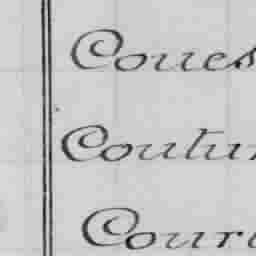 Coues
Coutur
Couri